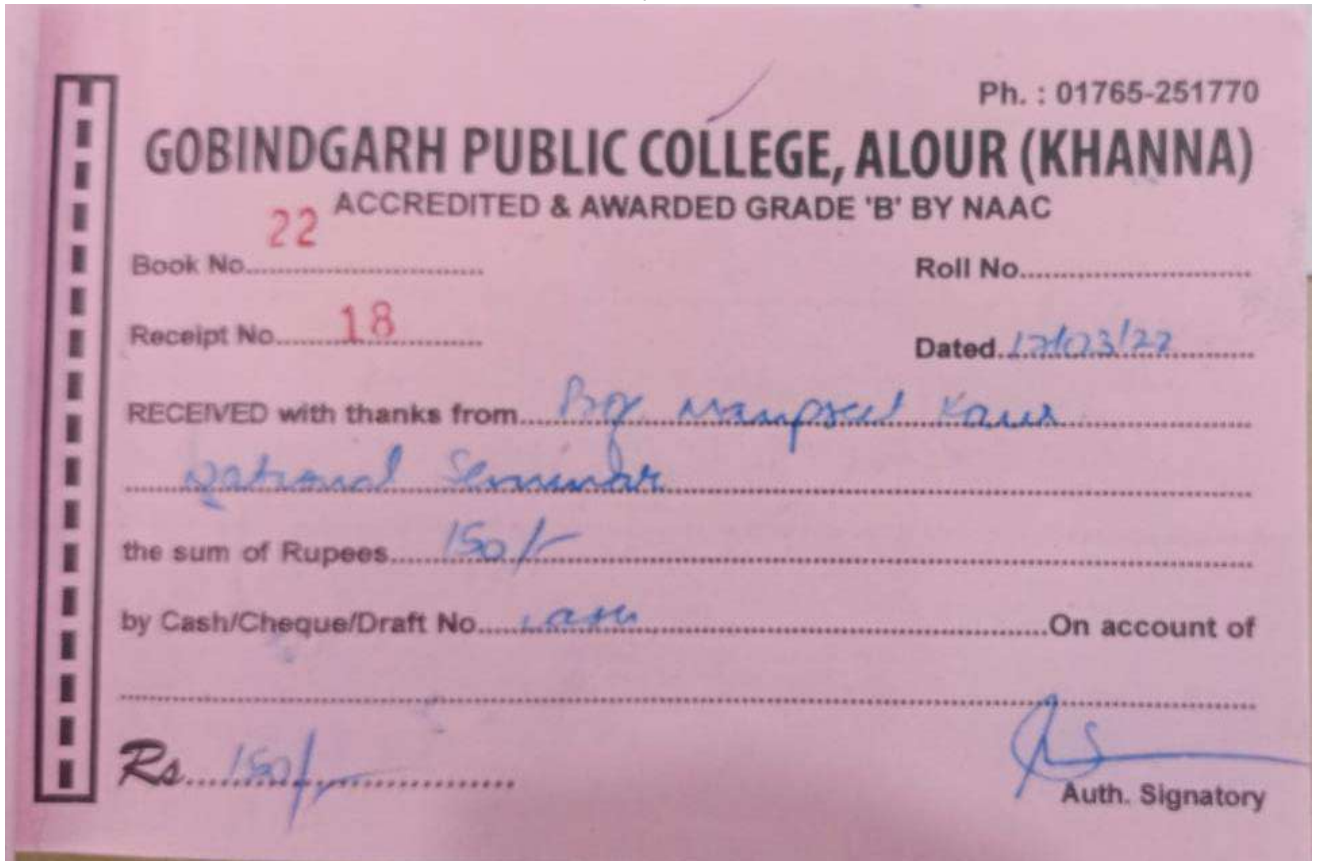 Ph. : 01765-251770
GOBINDGARH PUBLIC COLLEGE, ALOUR (KHANNA)
ACCREDITED & AWARDED GRADE 'B' BY NAAC
Book No. 22 Roll No.
Receipt No. 18 Dated 17/03/22
RECEIVED with thanks from Prof Manpreet Kaur
National Seminar
the sum of Rupees 150/-
by Cash/Cheque/Draft No. Cash On account of
Rs. 150/-
Auth. Signatory